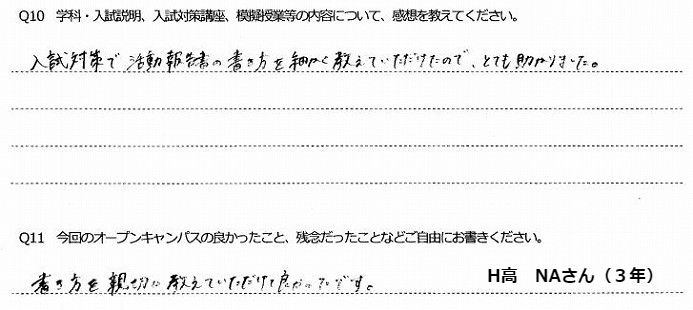 Q10 学科・入試説明、入試対策講座、模擬授業等の内容について、感想を教えてください。
入試対策で活動報告書の書き方を細かく教えていただけたので、とても助かりました。
Q11 今回のオープンキャンパスの良かったこと、残念だったことなどご自由にお書きください。
書き方を親切に教えていただけて良かったです。
H高 NAさん（３年）